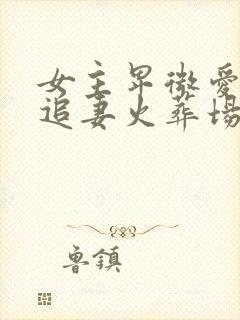 女主卑微愛
追妻火葬場
魯鎮